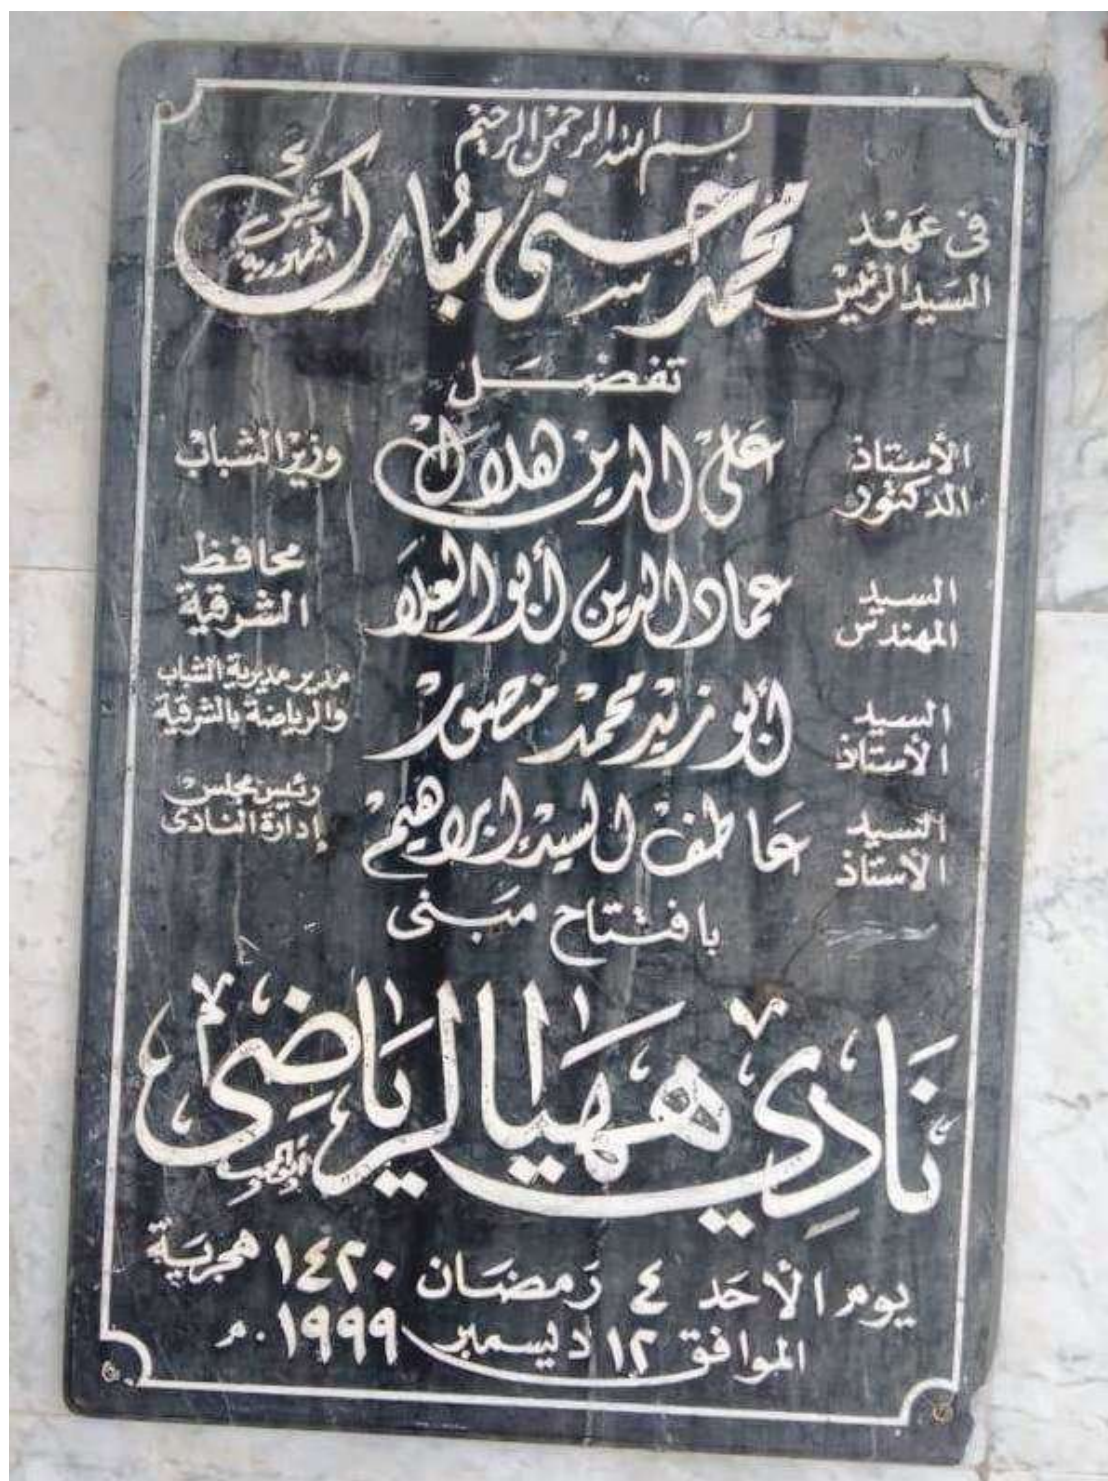 بسم الله الرحمن الرحيم
فى عهد السيد الرئيس محمد حسنى مبارك رئيس الجمهورية
تفضل
الأستاذ الدكتور على الدين هلال وزير الشباب
السيد المهندس عماد الدين أبو العلا محافظ الشرقية
السيد الأستاذ أبو زيد محمد منصور مدير مديرية الشباب والرياضة بالشرقية
السيد الأستاذ عاطف السيد ابراهيم رئيس مجلس إدارة النادى
بافتتاح مبنى
نادي ههيا الرياضي
يوم الأحد ٤ رمضان ١٤٢٠ هجرية
الموافق ١٢ ديسمبر ١٩٩٩ م